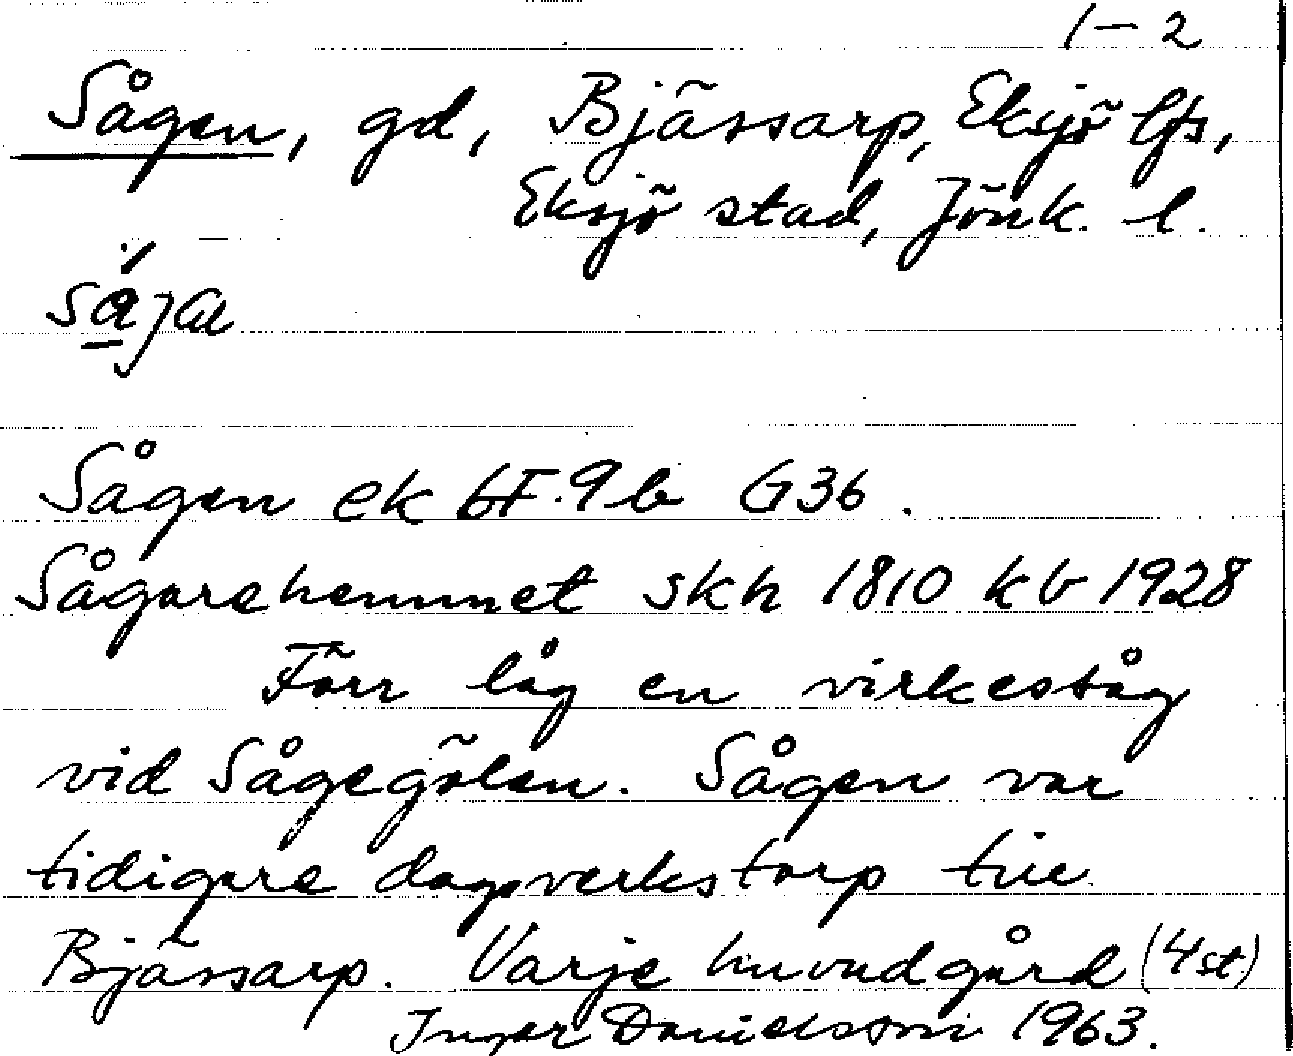 1–2
Sågen, gd, Bjässarp, Eksjö lfs,
Eksjö stad, Jönk. l.
Sågen ek 6F.9b G36.
Sågarehemmet skh 1810 kb 1928
Förr låg en virkessåg
vid Sågegölen. Sågen var
tidigare dagsverkstorp till
Bjässarp. Varje huvudgård (4 st)
Inger Danielsson 1963.